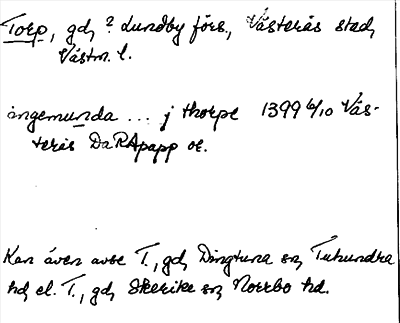 Torp, gd, ? Lundby förs., Västerås stad,
Västm. l.
ingemunda ... j thorpe 1399 6/10 Väs-
terås DaRApapp or.
Kan även avse T., gd, Dingtuna sn, Tuhundra
hd el. T., gd, Skerike sn, Norrbo hd.